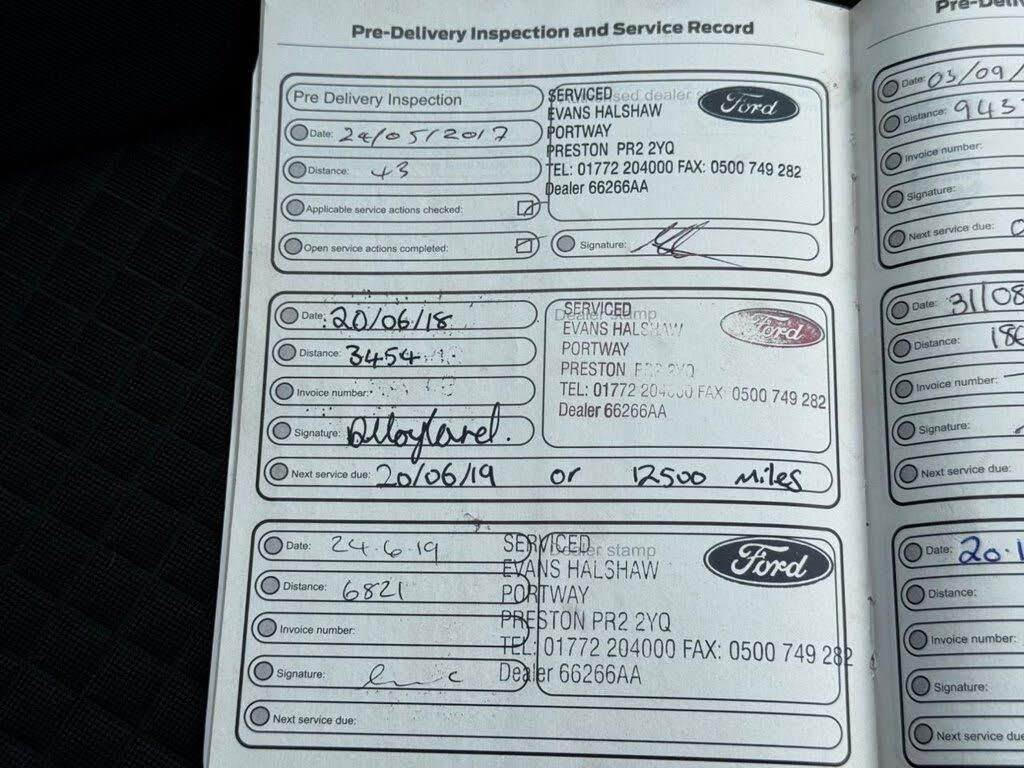 Pre-Delivery Inspection and Service Record
Pre Delivery Inspection
Date: 24/05/2017
Distance: 43
Applicable service actions checked:
Open service actions completed:
SERVICED
EVANS HALSHAW
PORTWAY
PRESTON PR2 2YQ
TEL: 01772 204000 FAX: 0500 749 282
Dealer 66266AA
Ford
Signature:
Date: 20/06/18
Distance: 3454
Invoice number:
Signature:
Next service due: 20/06/19 or 12500 Miles
Dealer stamp
SERVICED
EVANS HALSHAW
PORTWAY
PRESTON PR2 2YQ
TEL: 01772 204000 FAX 0500 749 282
Dealer 66266AA
Ford
Date: 24.6.19
Distance: 6821
Invoice number:
Signature:
Next service due:
Dealer stamp
SERVICED
EVANS HALSHAW
PORTWAY
PRESTON PR2 2YQ
TEL: 01772 204000 FAX: 0500 749 282
Dealer 66266AA
Ford
Date: 03/09/
Distance: 943
Invoice number:
Signature:
Next service due:
Date: 31/08
Distance: 186
Invoice number:
Signature:
Next service due:
Date: 20.1
Distance:
Invoice number:
Signature:
Next service due: